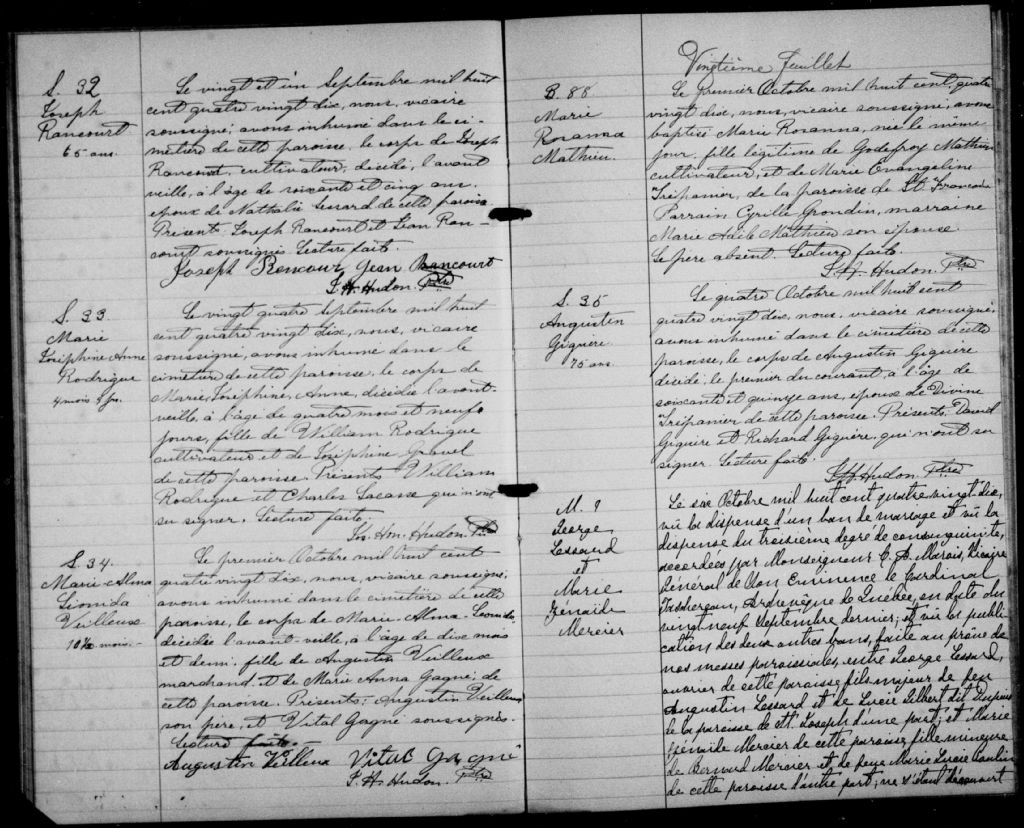 S. 32
Joseph
Rancourt
65 ans.
Le vingt et un Septembre mil huit
cent quatre vingt dix, nous, vicaire
soussigné, avons inhumé dans le ci-
metière de cette paroisse, le corps de Joseph
Rancourt, cultivateur, décédé, l'avant
veille, à l'âge de soixante et cinq ans.
epoux de Nathalie de cette paroisse.
Présents, Joseph Rancourt et Jean Ran-
court soussignés. Lecture faite.
Joseph Rencour Jean Rancourt
J. H. Hudon. Ptre
S. 33
Marie
Joséphine Anne
Rodrigue
4 mois 9 jrs.
Le vingt quatre Septembre mil huit
cent quatre vingt dix, nous, vicaire
soussigné, avons inhumé dans le
cimetière de cette paroisse, le corps de
Marie, Joséphine, Anne, décédée l'avant-
veille, à l'âge de quatre mois et neuf
jours, fille de William Rodrigue
cultivateur et de Joséphine Gravel
de cette paroisse. Présents William
Rodrigue et Charles Lacasse qui n'ont
su signer. Lecture faite.
Jos. Hon. Hudon. Ptre
S. 34.
Marie-Alma
Léonida
Veilleux
10½ mois.
Le premier Octobre mil huit cent
quatre vingt dix, nous, vicaire soussigné,
avons inhumé dans le cimetière de cette
paroisse, le corps de Marie-Alma-Leonida
décédée l'avant-veille, à l'âge de dix mois
et demi, fille de Augustin Veilleux
marchand et de Marie Anna Gagné, de
cette paroisse. Présents, Augustin Veilleux
son père, et Vital Gagné soussignés.
Lecture faite.
Augustin Veilleux Vital Gagné
J. H. Hudon. Ptre
Vingtième Feuillet
B. 88
Marie
Rosanna
Mathieu.
Le premier Octobre mil huit cent, quatre
vingt dix, nous, vicaire soussigné, avons
baptisé Marie Rosanna, née le même
jour, fille légitime de Godefroy Mathieu
cultivateur, et de Marie Evangeline
Trépanier, de la paroisse de St. Francois
Parrain Cyrille Grondin, marraine
Marie Mathieu son épouse.
Le père absent. Lecture faite.
J. H. Hudon. Ptre
S. 35
Augustin
Giguère
75 ans
Le quatre Octobre mil huit cent
quatre vingt dix, nous, vicaire soussigné,
avons inhumé dans le cimetière de cette
paroisse, le corps de Augustin Giguère
décédé, le premier du courant, à l'âge de
soixante et quinze ans, epoux de Divine
Trépanier de cette paroisse. Présents, David
Giguère et Richard Giguère, qui n'ont su
signer. Lecture faite.
J. H. Hudon. Ptre
M. 9
George
Lessard
et
Marie
Zénaide
Mercier
Le six Octobre mil huit cent quatre vingt dix,
vû la dispense d'un ban de mariage et vû la
dispense du troisième degré de consanguinité,
accordées par Monseigneur C. A. Marois, Vicaire
Général de Son Eminence le Cardinal
Taschereau, Archevêque de Québec, en date du
vingt neuf Septembre dernier; et vû la publi-
cation des deux autres bans, faite au prône de
nos messes paroissiales, entre George Lessard,
ouvrier de cette paroisse, fils majeur de feu
Augustin Lessard et de Lucie Gilbert dit Dupuis
de la paroisse de St. Joseph d'une part; et Marie
Zénaide Mercier de cette paroisse, fille mineure
de Bernard Mercier et de feue Marie Lucie Poulin
de cette paroisse d'autre part; ne s'étant découvert